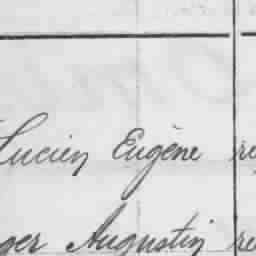 Lucien Eugène re
ger Augustin re